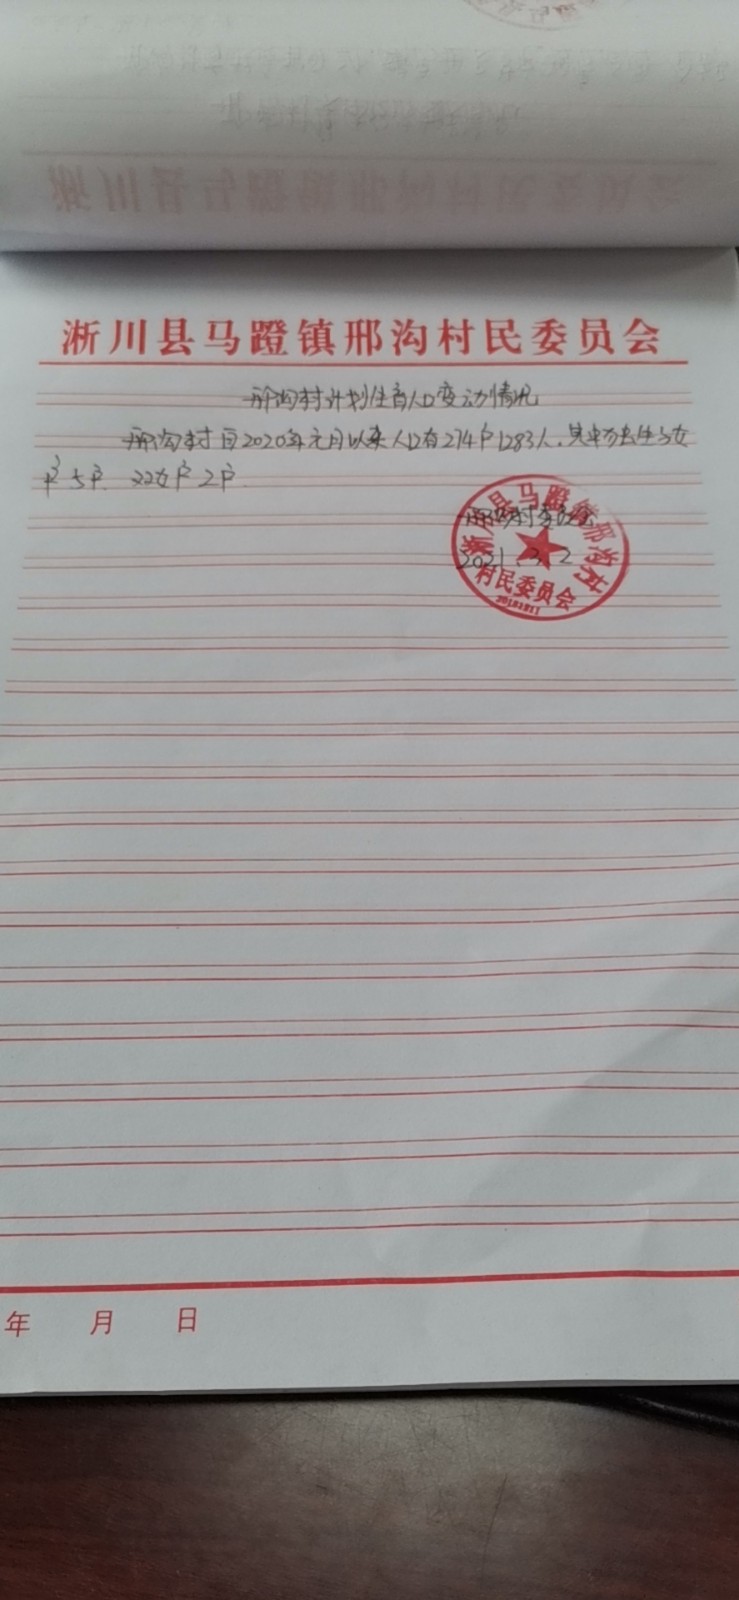 淅川县马蹬镇邢沟村民委员会
邢沟村计划生育人口变动情况
邢沟村自2020年元月以来人口有274户1283人，其中
户5户 22女户2户
邢沟村委员会
2021.3.2
淅川县马蹬镇邢沟村
村民委员会
年 月 日